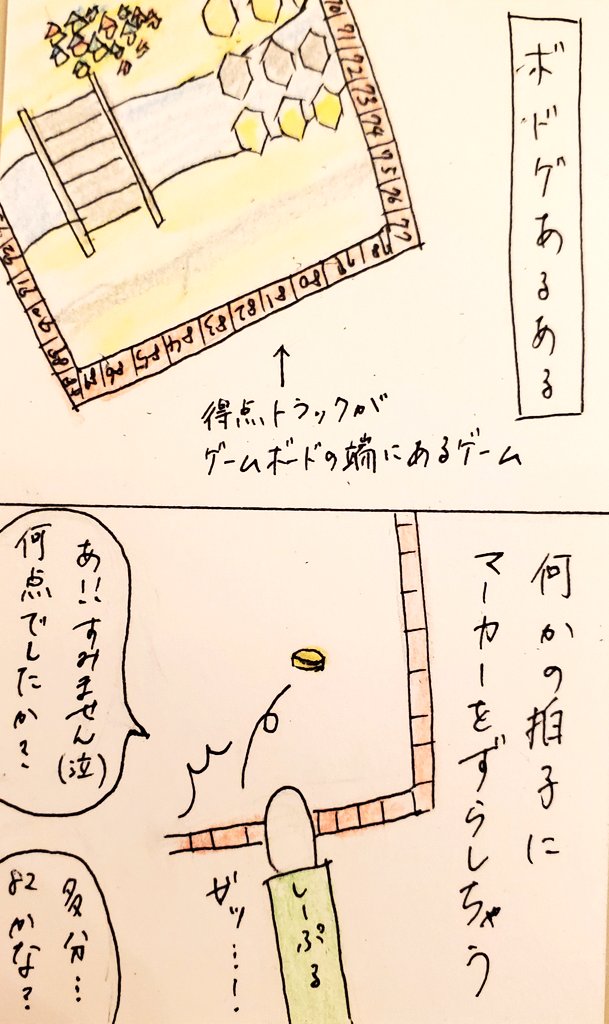 ボドゲあるある
70
71
72
73
74
75
76
77
78
79
80
81
82
83
84
85
86
87
88
89
90
91
92
得点トラックが
ゲームボードの端にあるゲーム
何かの拍子に
マーカーをずらしちゃう
ザッ…!
しーぷる
あ!!すみません(泣)
何点でしたか?
多分…
82かな?